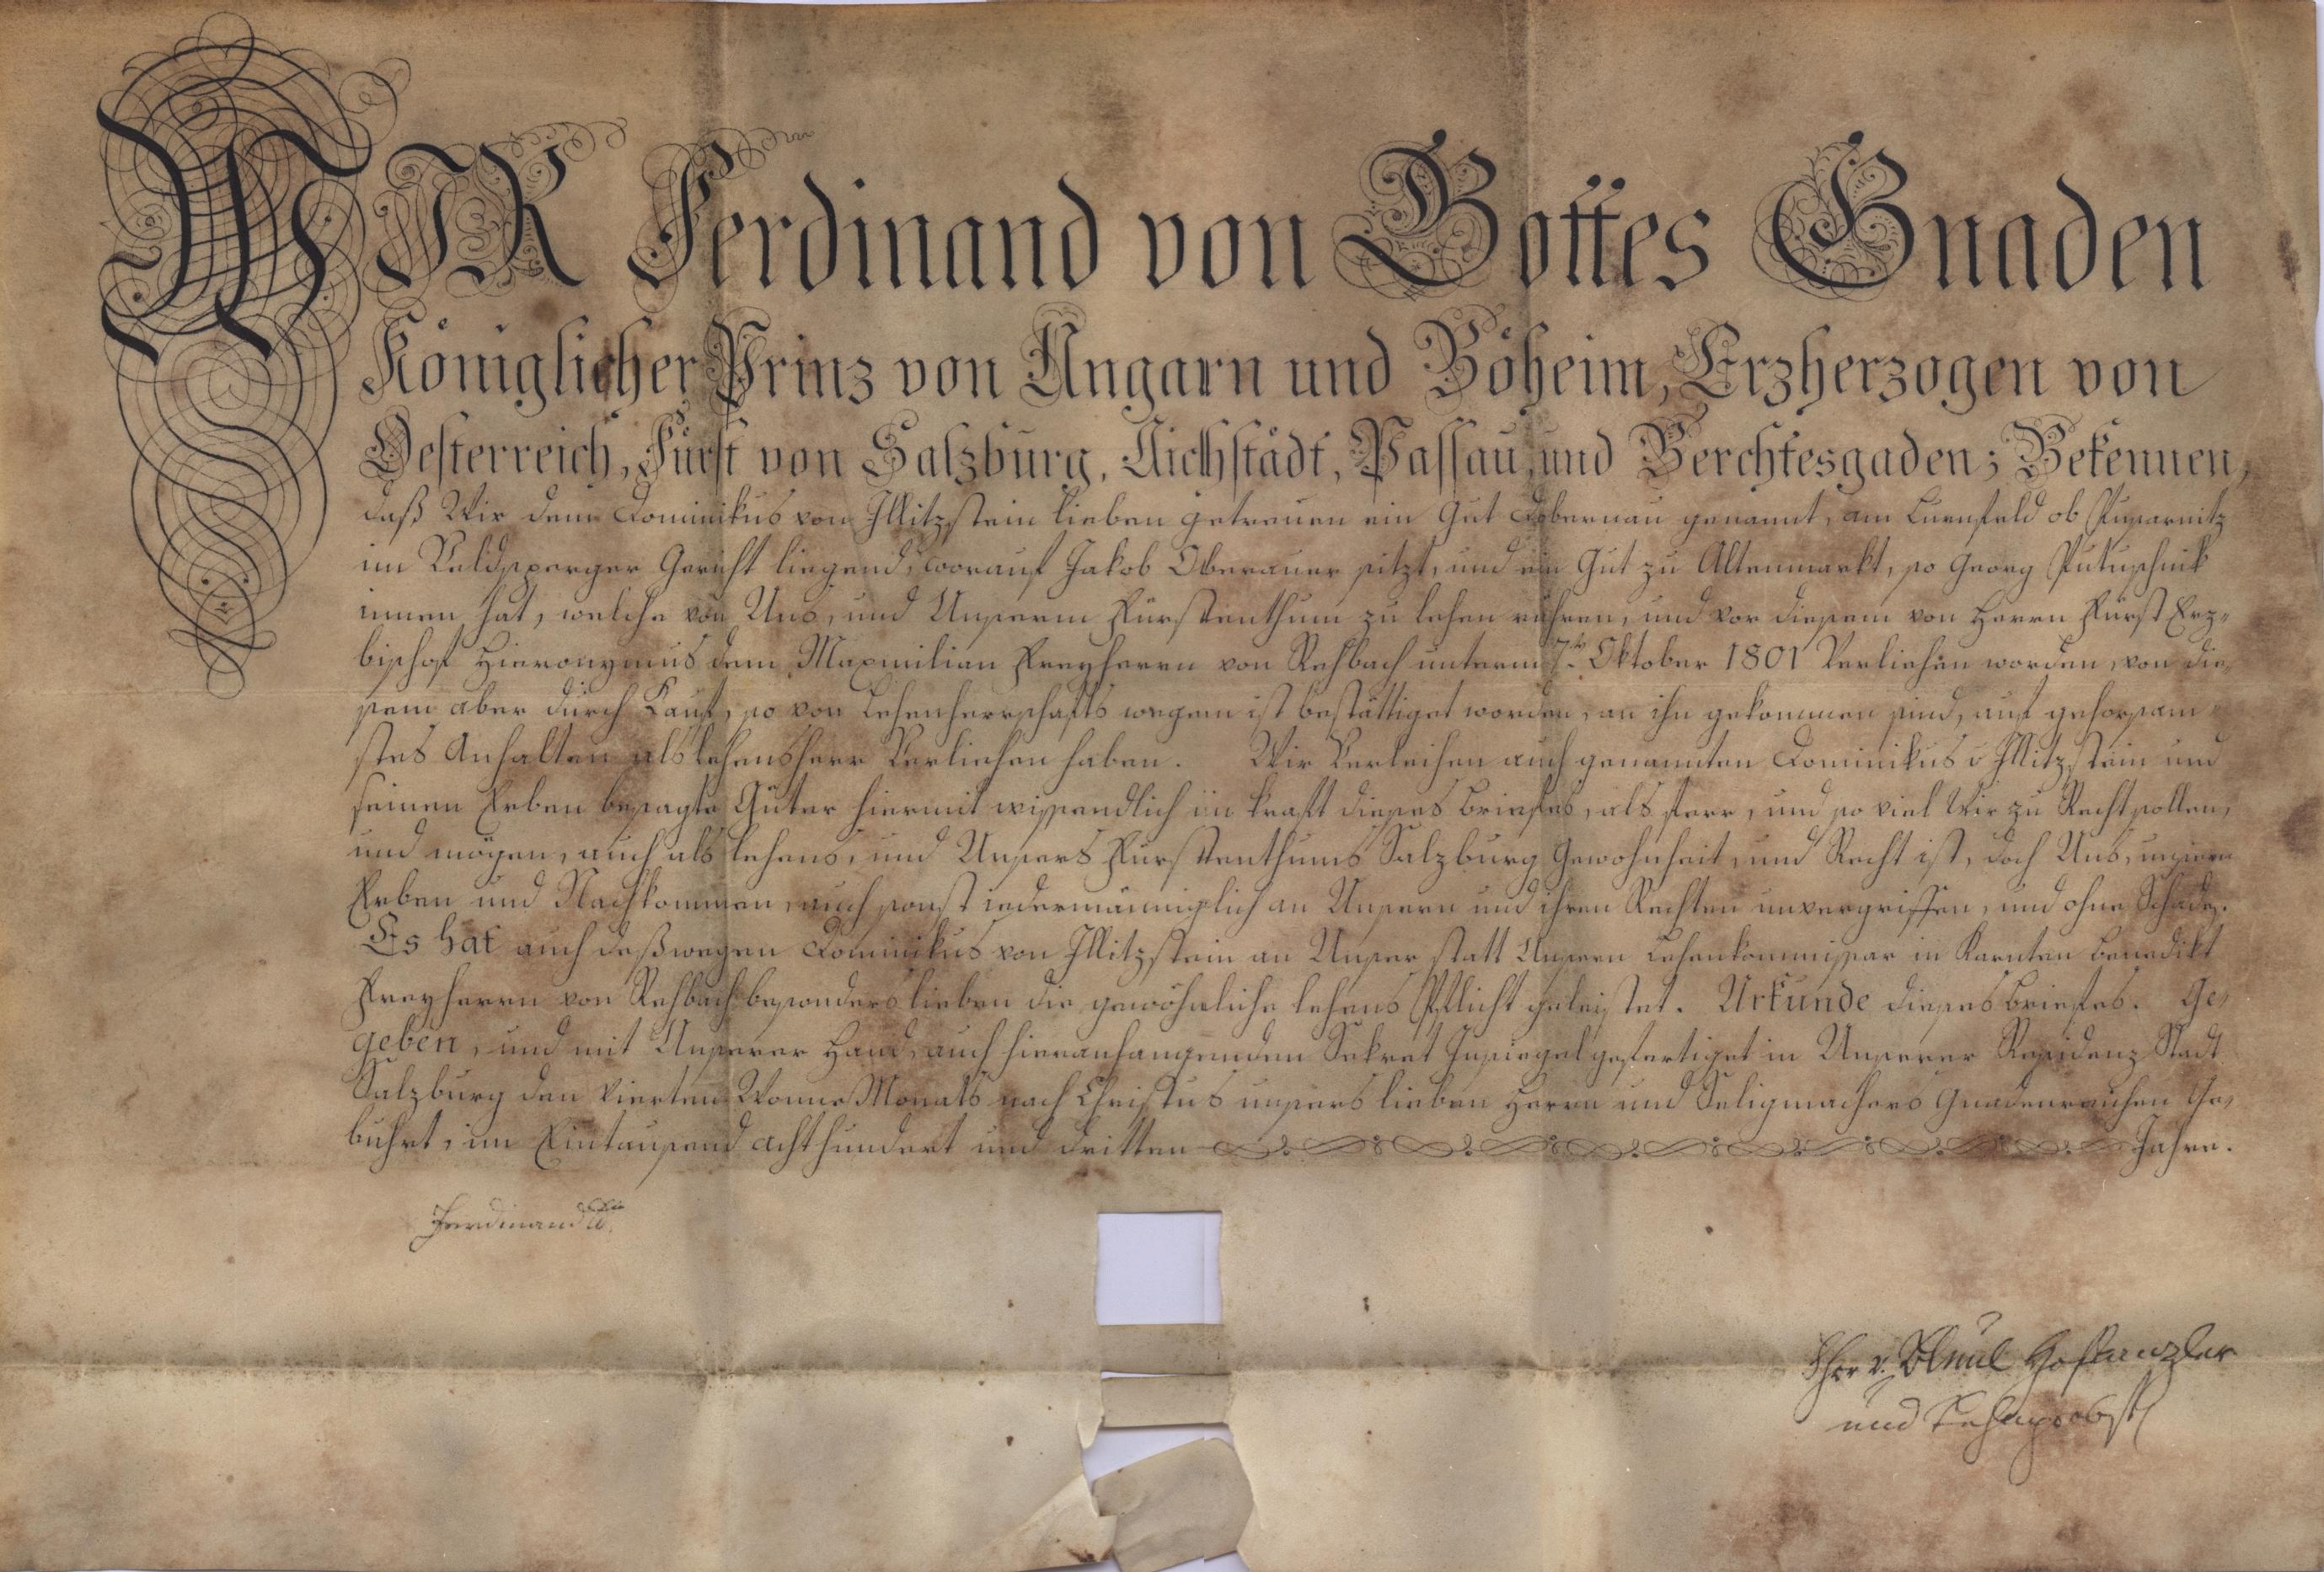 WIR Ferdinand von Gottes Gnaden
Königlicher Prinz von Ungarn und Böheim, Erzherzogen von
Oesterreich, Fürst von Salzburg, Aichstädt, Passau, und Berchtesgaden; Bekennen,
daß Wir dem Dominikus von Illitzstein lieben getreuen ein Gut Dobernau genannt, am Luenfeld ob
im Veldsperger Gericht liegend, worauf Jakob Oberauer sitzt, und ein Gut zu Altenmarkt, so Georg Putuschnik
innen hat, welche von Uns, und Unserm Fürstenthum zu lehen rühren, und vor diesem von Herrn Fürst Erz-
bischof Hieronymus dem Maxmilian Freyherrn von Rehbach unterm 7t. Oktober 1801 Verliehen worden, von die-
sem aber durch Kauf, so von Lehenherrschafts wegen ist bestättiget worden, an ihn gekommen sind, auf gehorsam-
stes Anhalten als lehensherr Verliehen haben. Wir Verleihen auch genannten Dominikus v Illitzstein und
seinen Erben besagte Güter hiermit wissendlich in kraft dieses Briefes, als ferr, und so viel Wir zu Recht sollen,
und mögen, auch als lehens, und Unsers Fürstenthums Salzburg Gewohnheit, und Recht ist, doch Uns, unsern
Erben und Nachkommen, auch sonst iedermänniglich an Unsern und ihren Rechten unvergriffen, und ohne Schade.
Es hat auch deßwegen Dominikus von Illitzstein an Unser statt Unsern Lehenkommissar in Karnten Benedikt
Freyherrn von Rehbach besonders lieben die gewöhnliche lehens Pflicht geleistet. Urkunde dieses Briefes. Ge-
geben, und mit Unserer Hand, auch hieranhangenden Sekret Insiegel gefertiget in Unserer Residenz Stadt
Salzburg den Vierten Wonne Monats nach Christus unsers lieben Herrn und Seligmachers Gnadenreichen Ge-
buhrt, im Eintausend achthundert und dritten Jahre.
Ferdinand
Fhr v. Bleul Hofkanzler
und Lehenprobst